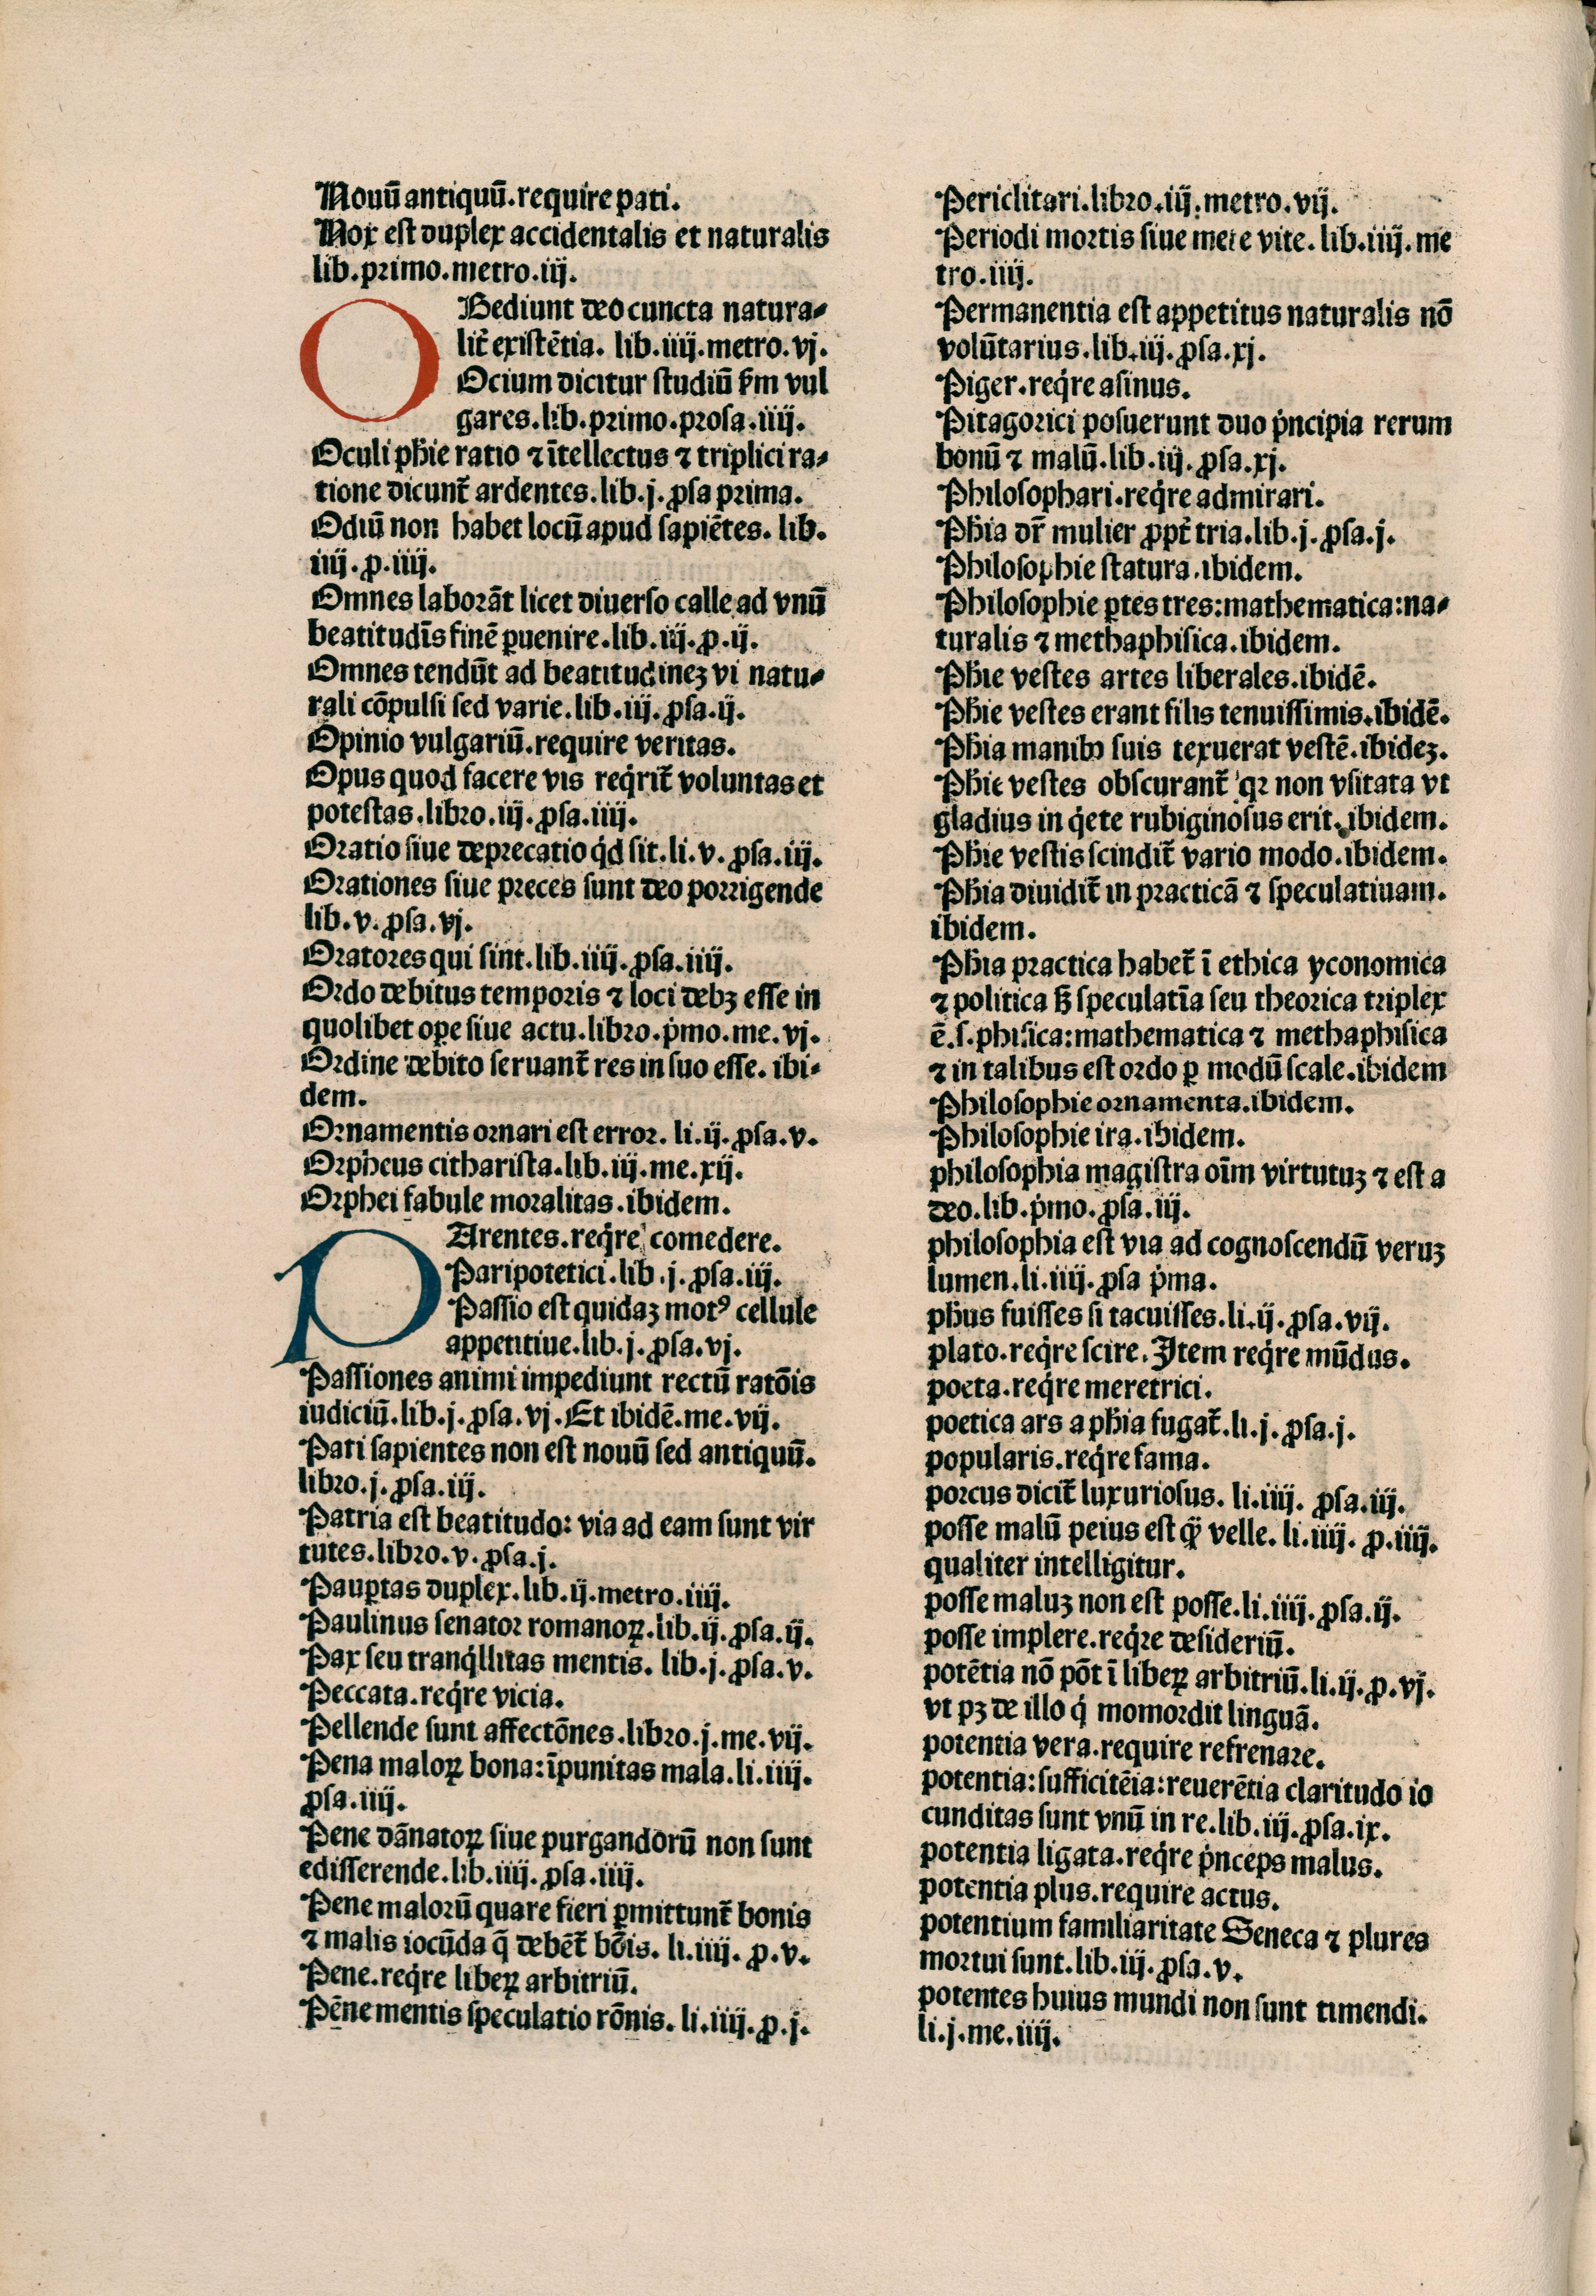 Nouū antiquū.require pati.
Nox est duplex accidentalis et naturalis
lib.primo.metro.iij.
OBediunt deo cuncta natura⸗
lit̄ existētia. lib.iiij.metro.vj.
Ocium dicitur studiū ẜm vul
gares.lib.primo.prosa.iiij.
Oculi phīe ratio ⁊ ītellectus ⁊ triplici ra⸗
tione dicunt̄ ardentes.lib.j.ꝓsa prima.
Odiū non habet locū apud sapiētes. lib.
iiij.ꝓ.iiij.
Omnes laborāt licet diuerso calle ad vnū
beatitudīs finē ꝑuenire.lib.iij.ꝓ.ij.
Omnes tendūt ad beatitudineꝫ vi natu⸗
rali cōpulsi sed varie.lib.iij.ꝓsa.ij.
Opinio vulgariū.require veritas.
Opus quod facere vis reqͥrit̄ voluntas et
potestas.libro.iij.ꝓsa.iiij.
Oratio siue deprecatio qͥd sit.li.v.ꝓsa.iij.
Orationes siue preces sunt deo porrigende
lib.v.ꝓsa.vj.
Oratores qui sint.lib.iiij.ꝓsa.iiij.
Ordo debitus temporis ⁊ loci debꝫ esse in
quolibet oꝑe siue actu.libro.pͥmo.me.vj.
Ordine debito seruant̄ res in suo esse. ibi⸗
dem.
Ornamentis ornari est error. li.ij.ꝓsa.v.
Orpheus citharista.lib.iij.me.xij.
Orphei fabule moralitas.ibidem.
PArentes.reqͥre comedere.
Paripotetici.lib.j.ꝓsa.iij.
Passio est quidaꝫ motꝰ cellule
appetitiue.lib.j.ꝓsa.vj.
Passiones animi impediunt rectū ratōis
iudiciū.lib.j.ꝓsa.vj.Et ibidē.me.vij.
Pati sapientes non est nouū sed antiquū.
libro.j.ꝓsa.iij.
Patria est beatitudo: via ad eam sunt vir
tutes.libro.v.ꝓsa.j.
Pauꝑtas duplex.lib.ij.metro.iiij.
Paulinus senator romanoꝝ.lib.ij.ꝓsa.ij.
Pax seu tranqͥllitas mentis. lib.j.ꝓsa.v.
Peccata.reqͥre vicia.
Pellende sunt affectōnes.libro.j.me.vij.
Pena maloꝝ bona:īpunitas mala.li.iiij.
ꝓsa.iiij.
Pene dānatoꝝ siue purgandorū non sunt
edisserende.lib.iiij.ꝓsa.iiij.
Pene malorū quare fieri ꝑmittunt̄ bonis
⁊ malis iocūda q̄ debēt̄ bōis. li.iiij.ꝓ.v.
Pene.reqͥre libeꝝ arbitriū.
Pēne mentis speculatio rōnis. li.iiij.ꝓ.j.
Periclitari.libro.iij.metro.vij.
Periodi mortis siue mete vite. lib.iiij.me
tro.iiij.
Permanentia est appetitus naturalis nō
volūtarius.lib.iij.ꝓsa.xj.
Piger.reqͥre asinus.
Pitagorici posuerunt duo pͥncipia rerum
bonū ⁊ malū.lib.iij.ꝓsa.xj.
Philosophari.reqͥre admirari.
Phīa dr̄ mulier ꝓpt̄ tria.lib.j.ꝓsa.j.
Philosophie statura.ibidem.
Philosophie ꝑtes tres:mathematica:na⸗
turalis ⁊ methaphisica.ibidem.
Phīe vestes artes liberales.ibidē.
Phīe vestes erant filis tenuissimis.ibidē.
Phīa manibꝰ suis texuerat vestē.ibideꝫ.
Phīe vestes obscurant̄ qꝛ non vsitata vt
gladius in qͥete rubiginosus erit.ibidem.
Phīe vestis scindit̄ vario modo.ibidem.
Phīa diuidit̄ in practicā ⁊ speculatiuam.
ibidem.
Phīa practica habet̄ ī ethica yconomica
⁊ politica sꝫ speculatīa seu theorica triplex
ē.s.phisica:mathematica ⁊ methaphisica
⁊ in talibus est ordo ꝑ modū scale.ibidem
Philosophie ornamenta.ibidem.
Philosophie ira.ibidem.
philosophia magistra oīm virtutuꝫ ⁊ est a
deo.lib.pͥmo.ꝓsa.iij.
philosophia est via ad cognoscendū veruꝫ
lumen.li.iiij.ꝓsa pͥma.
phūs fuisses si tacuisses.li.ij.ꝓsa.vij.
plato.reqͥre scire. Item reqͥre mūdus.
poeta.reqͥre meretrici.
poetica ars a phīa fugat̄.li.j.ꝓsa.j.
popularis.reqͥre fama.
porcus dicit̄ luxuriosus. li.iiij. ꝓsa.iij.
posse malū peius est qͣ̄ velle. li.iiij. ꝓ.iiij.
qualiter intelligitur.
posse maluꝫ non est posse.li.iiij.ꝓsa.ij.
posse implere.reqͥre desideriū.
potētia nō pōt ī libeꝝ arbitriū.li.ij.ꝓ.vj.
vt pꝫ de illo qͥ momordit linguā.
potentia vera.require refrenare.
potentia:sufficitēia:reuerētia claritudo io
cunditas sunt vnū in re.lib.iij.ꝓsa.ix.
potentia ligata.reqͥre pͥnceps malus.
potentia plus.require actus.
potentium familiaritate Seneca ⁊ plures
mortui sunt.lib.iij.ꝓsa.v.
potentes huius mundi non sunt timendi.
li.j.me.iiij.